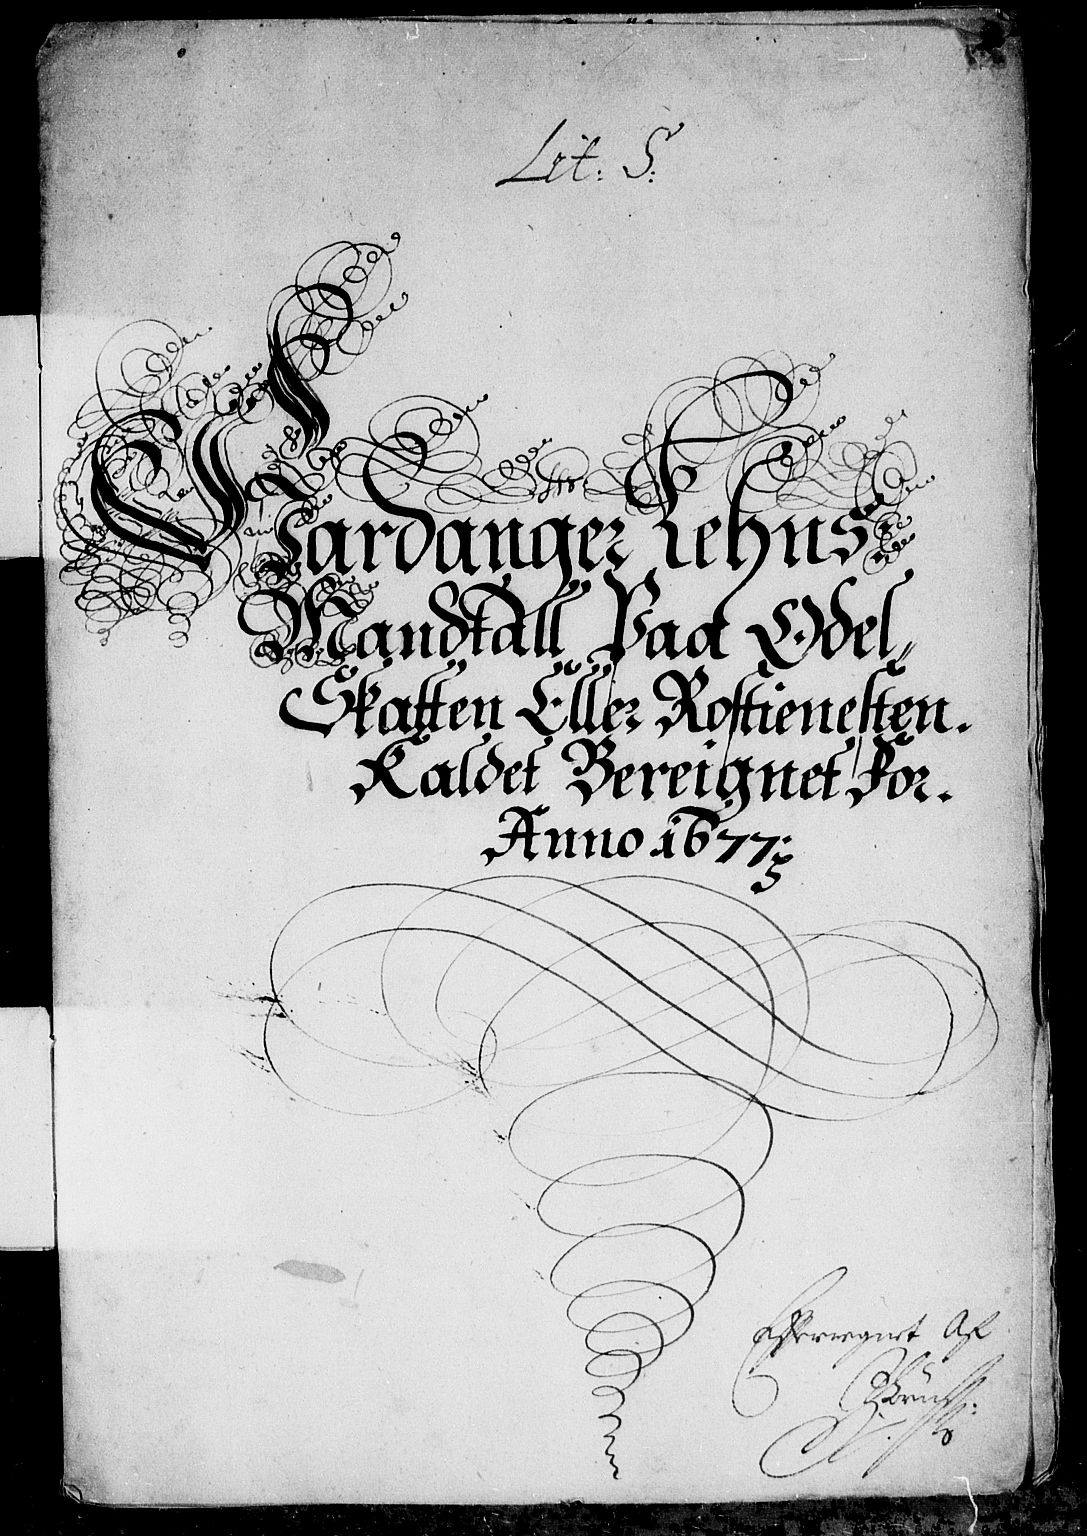 Lit: S:
Hardanger Lehns
Mandtall Paa Odel,,
Skatten Eller Rostienesten.
Kaldet Bereignet For.
Anno 1677:
Efferregnet Af